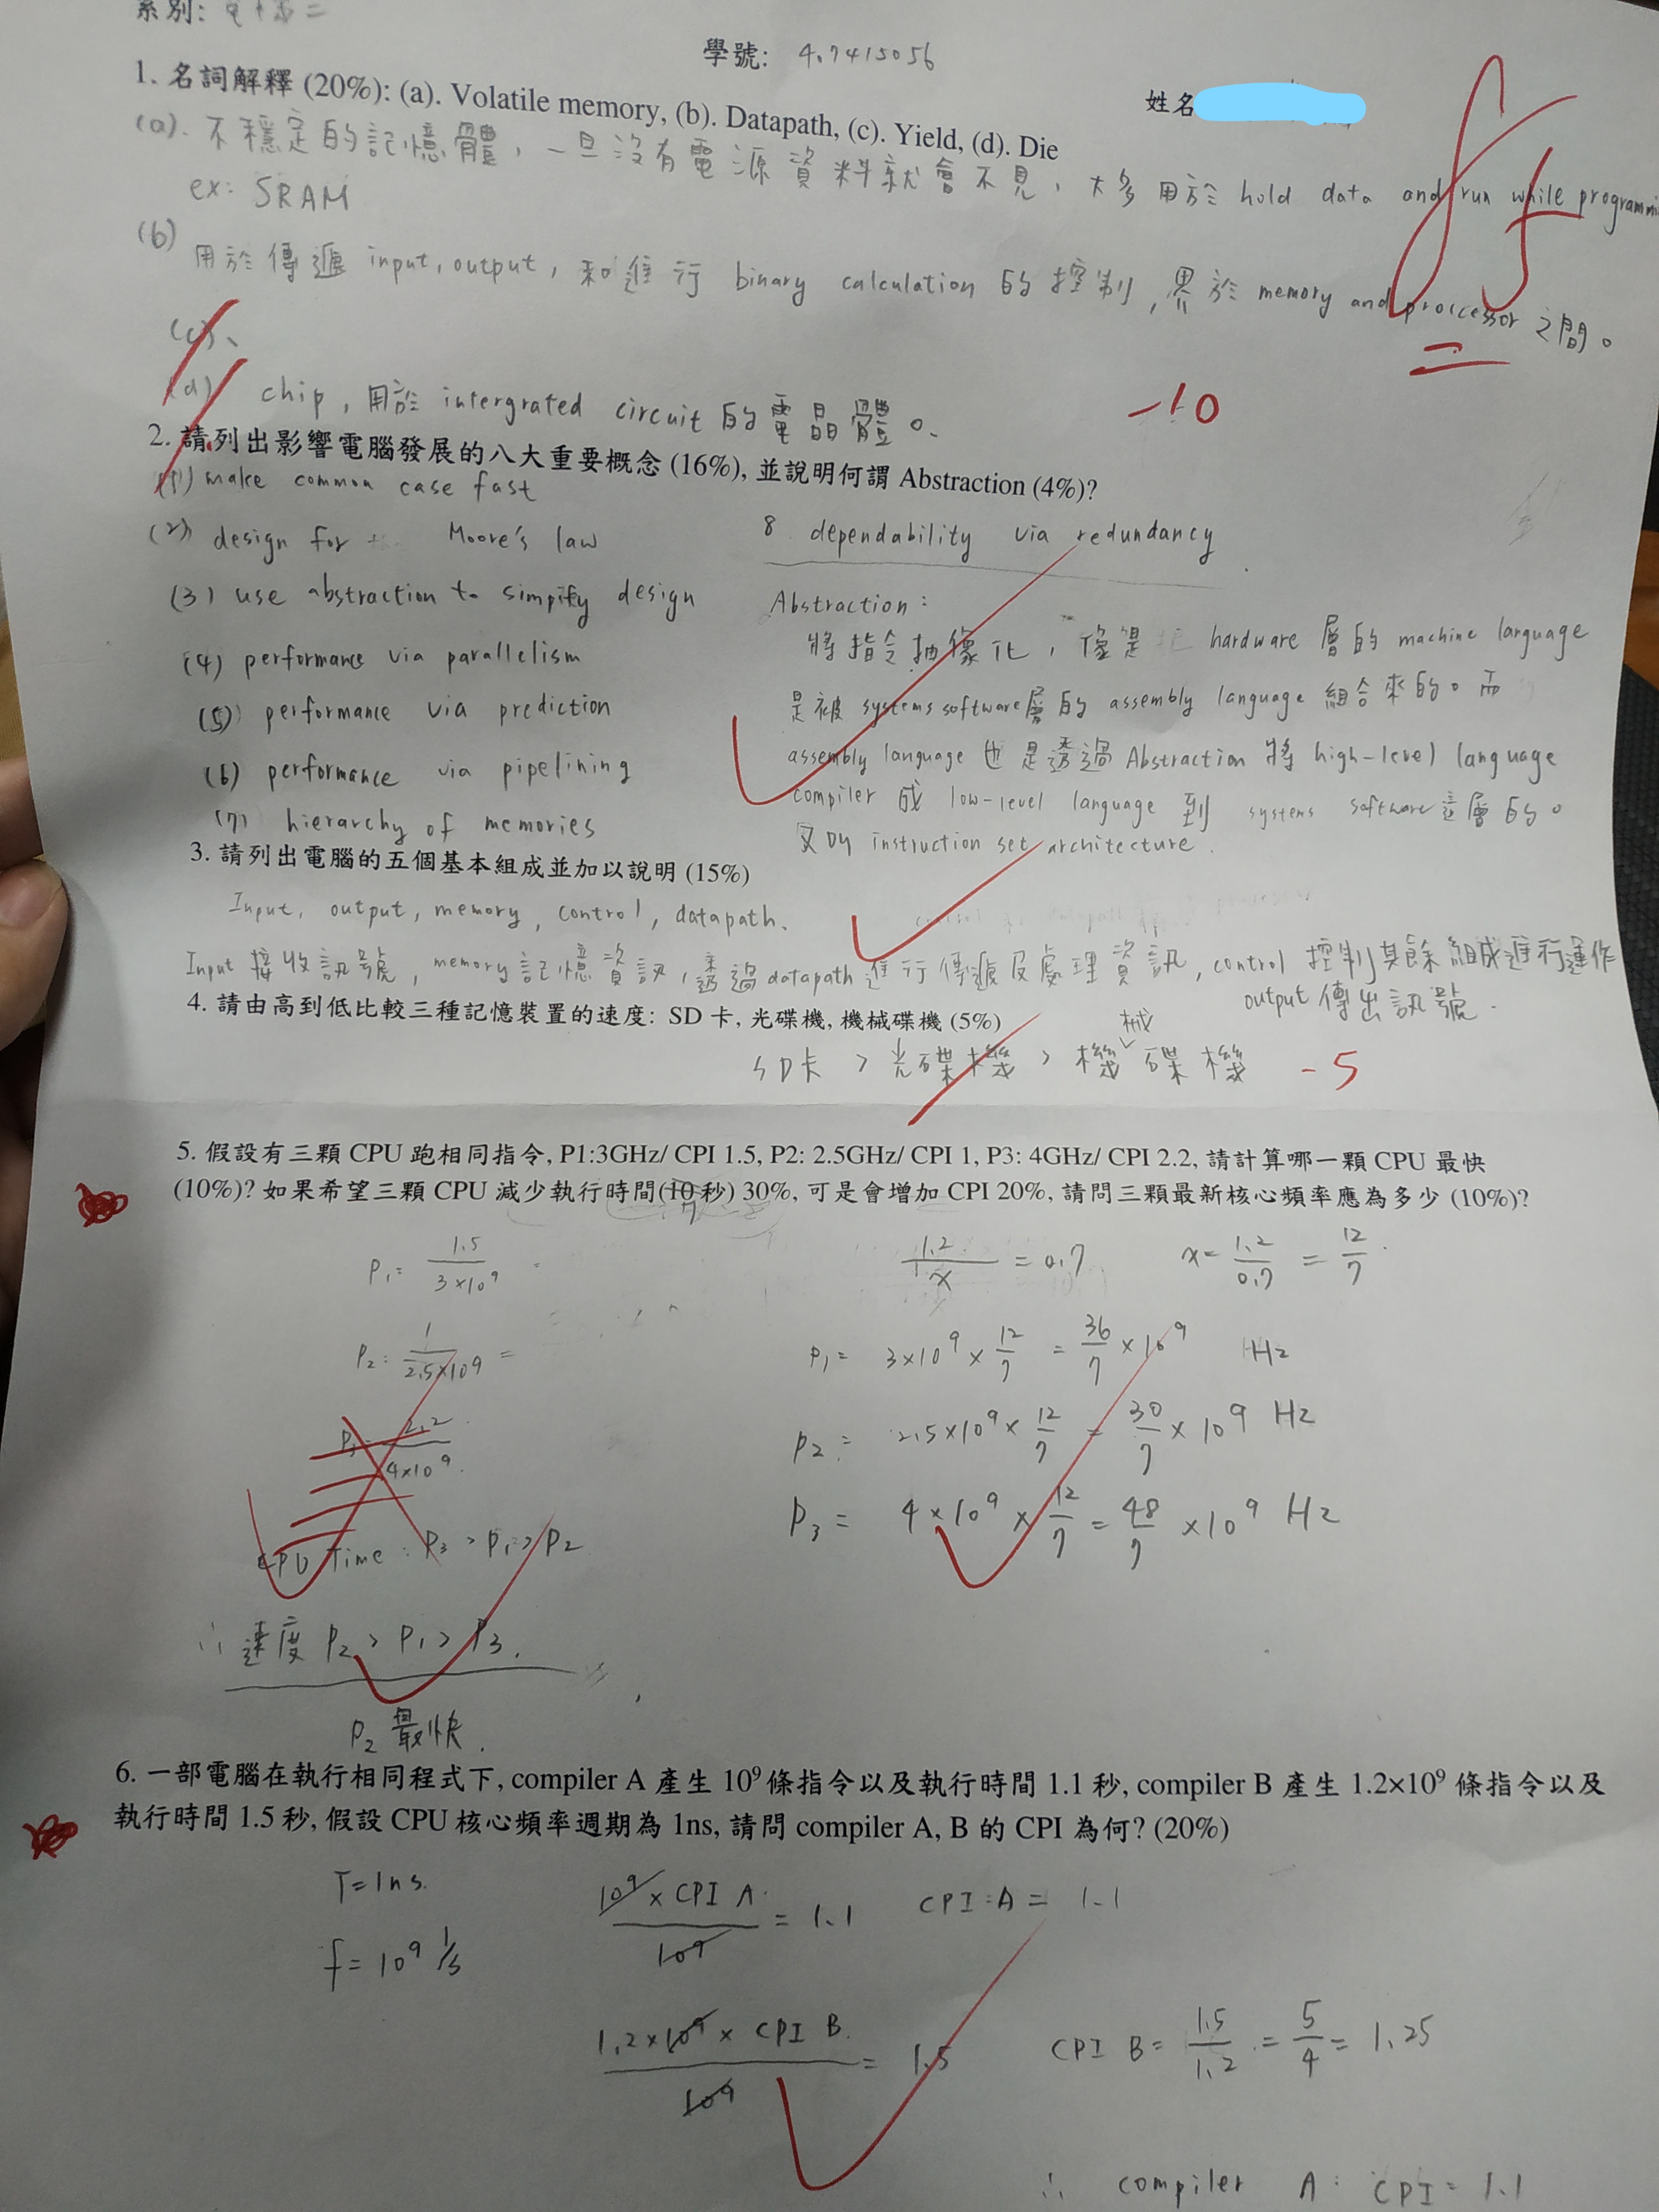 系別: 電機二
學號: 4.7415056
姓名
85
1. 名詞解釋 (20%): (a). Volatile memory, (b). Datapath, (c). Yield, (d). Die
(a). 不穩定的記憶體, 一旦沒有電源資料就會不見, 大多用於 hold data and run while programmi
ex: SRAM
(b) 用於傳遞 input, output, 和進行 binary calculation 的控制, 界於 memory and proccessor 之間。
(c)、
(d) chip, 用於 intergrated circuit 的電晶體。
-10
2. 請列出影響電腦發展的八大重要概念 (16%), 並說明何謂 Abstraction (4%)?
(1) make common case fast
(2) design for Moore's law
(3) use abstraction to simpify design
(4) performance via parallelism
(5) performance via prediction
(6) performance via pipelining
(7) hierarchy of memories
8 dependability via redundancy
Abstraction:
將指令抽像化, 像是 hardware 層的 machine language
是被 systems software層的 assembly language 組合來的。而
assembly language 也是透過 Abstraction 將 high-level language
compiler 成 low-level language 到 systems software這層的。
又叫 instruction set architecture.
3. 請列出電腦的五個基本組成並加以說明 (15%)
Input, output, memory, control, datapath.
Input 接收訊號, memory記憶資訊, 透過datapath進行傳遞及處理資訊, control 控制其餘組成進行運作
output 傳出訊號.
4. 請由高到低比較三種記憶裝置的速度: SD 卡, 光碟機, 機械碟機 (5%)
SD卡 > 光碟機 > 機械碟機 -5
5. 假設有三顆 CPU 跑相同指令, P1:3GHz/ CPI 1.5, P2: 2.5GHz/ CPI 1, P3: 4GHz/ CPI 2.2, 請計算哪一顆 CPU 最快
(10%)? 如果希望三顆 CPU 減少執行時間(10 秒) 30%, 可是會增加 CPI 20%, 請問三顆最新核心頻率應為多少 (10%)?
7
P1= 1.5/3×10⁹ =
P2: 1/2.5×10⁹ =
P3= 2.2/4×10⁹.
CPU Time: P3 > P1 > P2
∴ 速度 P2 > P1 > P3.
P2 最快.
1.2/x = 0.7 x= 1.2/0.7 = 12/7
P1= 3×10⁹ × 12/7 = 36/7 × 10⁹ Hz
P2= 2.5×10⁹ × 12/7 = 30/7 × 10⁹ Hz
P3= 4×10⁹ × 12/7 = 48/7 ×10⁹ Hz
6. 一部電腦在執行相同程式下, compiler A 產生 10⁹ 條指令以及執行時間 1.1 秒, compiler B 產生 1.2×10⁹ 條指令以及
執行時間 1.5 秒, 假設 CPU 核心頻率週期為 1ns, 請問 compiler A, B 的 CPI 為何? (20%)
T=1ns.
f= 10⁹ 1/s
10⁹ × CPI A/10⁹ = 1.1 CPI A = 1.1
1.2×10⁹ × CPI B/10⁹ = 1.5 CPI B= 1.5/1.2 = 5/4 = 1.25
∴ compiler A: CPI= 1.1